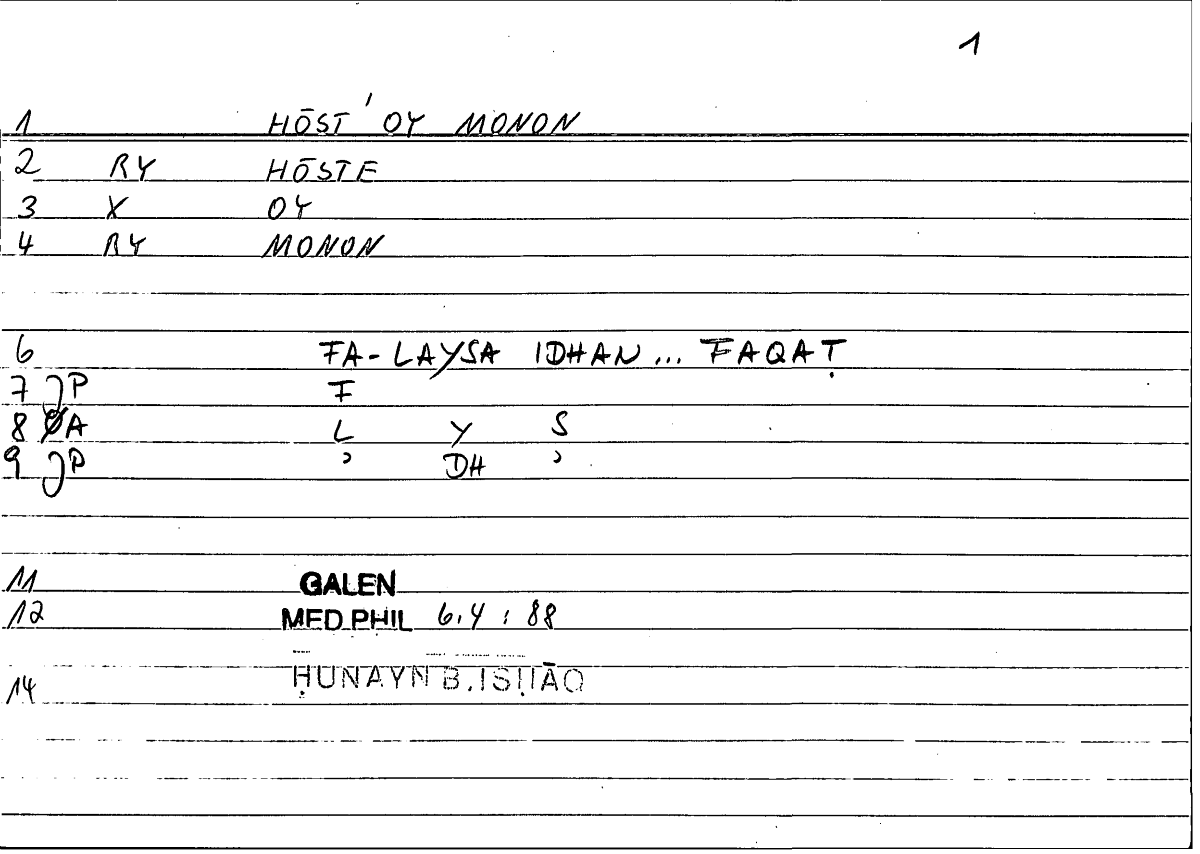 1
1 HŌST' OY MONON
2 RY HŌSTE
3 X OY
4 RY MONON
6 FA-LAYSA IDHAN... FAQAṬ
7 JP F
8 A L Y S
9 JP ʾ DH ʾ
11 GALEN
12 MED.PHIL 6,4 : 88
14 ḤUNAYN B.ISḤĀQ